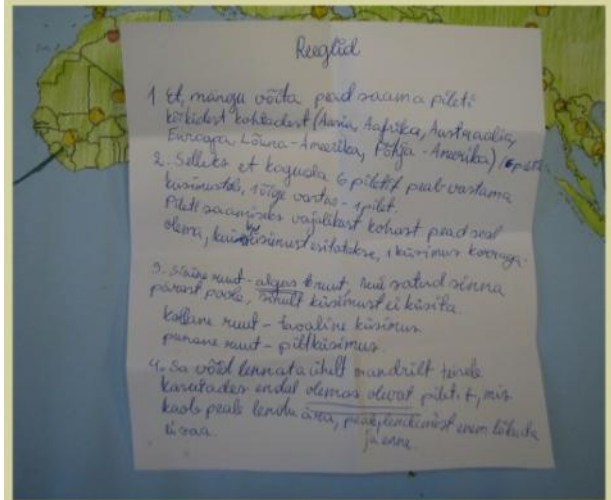 Reeglid
1 Et, mängu võita pead saama pileti
kõikidest kohtadest (Aasia, Aafrika, Austraalia,
Euroopa, Lõuna-Ameerika, Põhja-Ameerika)
2. Selleks et koguda 6 piletit peab vastama
küsimustele, 1 õige vastus - 1 pilet.
Pileti saamiseks vajalikust kohast pead seal
olema, kui küsimust esitatakse, 1 küsimus korraga.
3. Sinine ruut - algus ruut, kui satud sinna
pärast poole, sinult küsimust ei küsita
kollane ruut - tavaline küsimus
punane ruut - piltküsimus
4. Sa võid lennata ühelt mandrilt teisele
kasutades endal olemas olevat piletit, mis
kaob peale lendu ära, peale lendamist enam liikuda
ei saa. ja enne